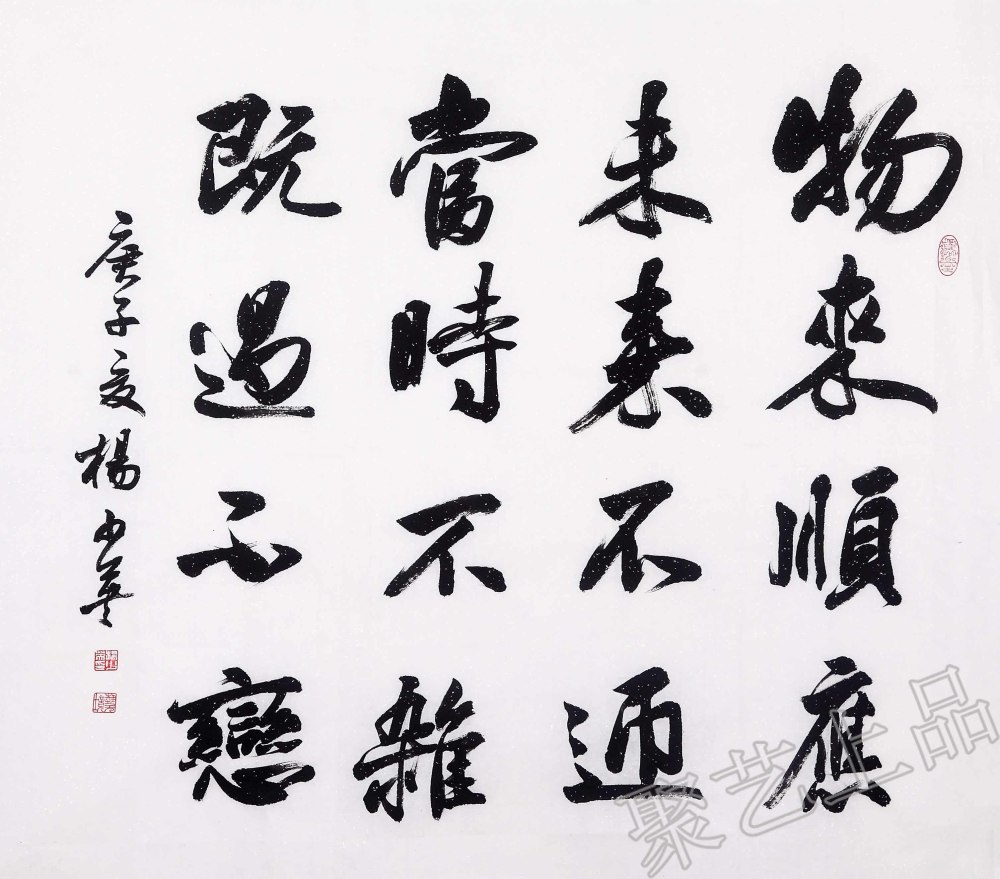 物來順應
未來不迎
當時不雜
既過不戀
庚子夏楊少
聚艺上品